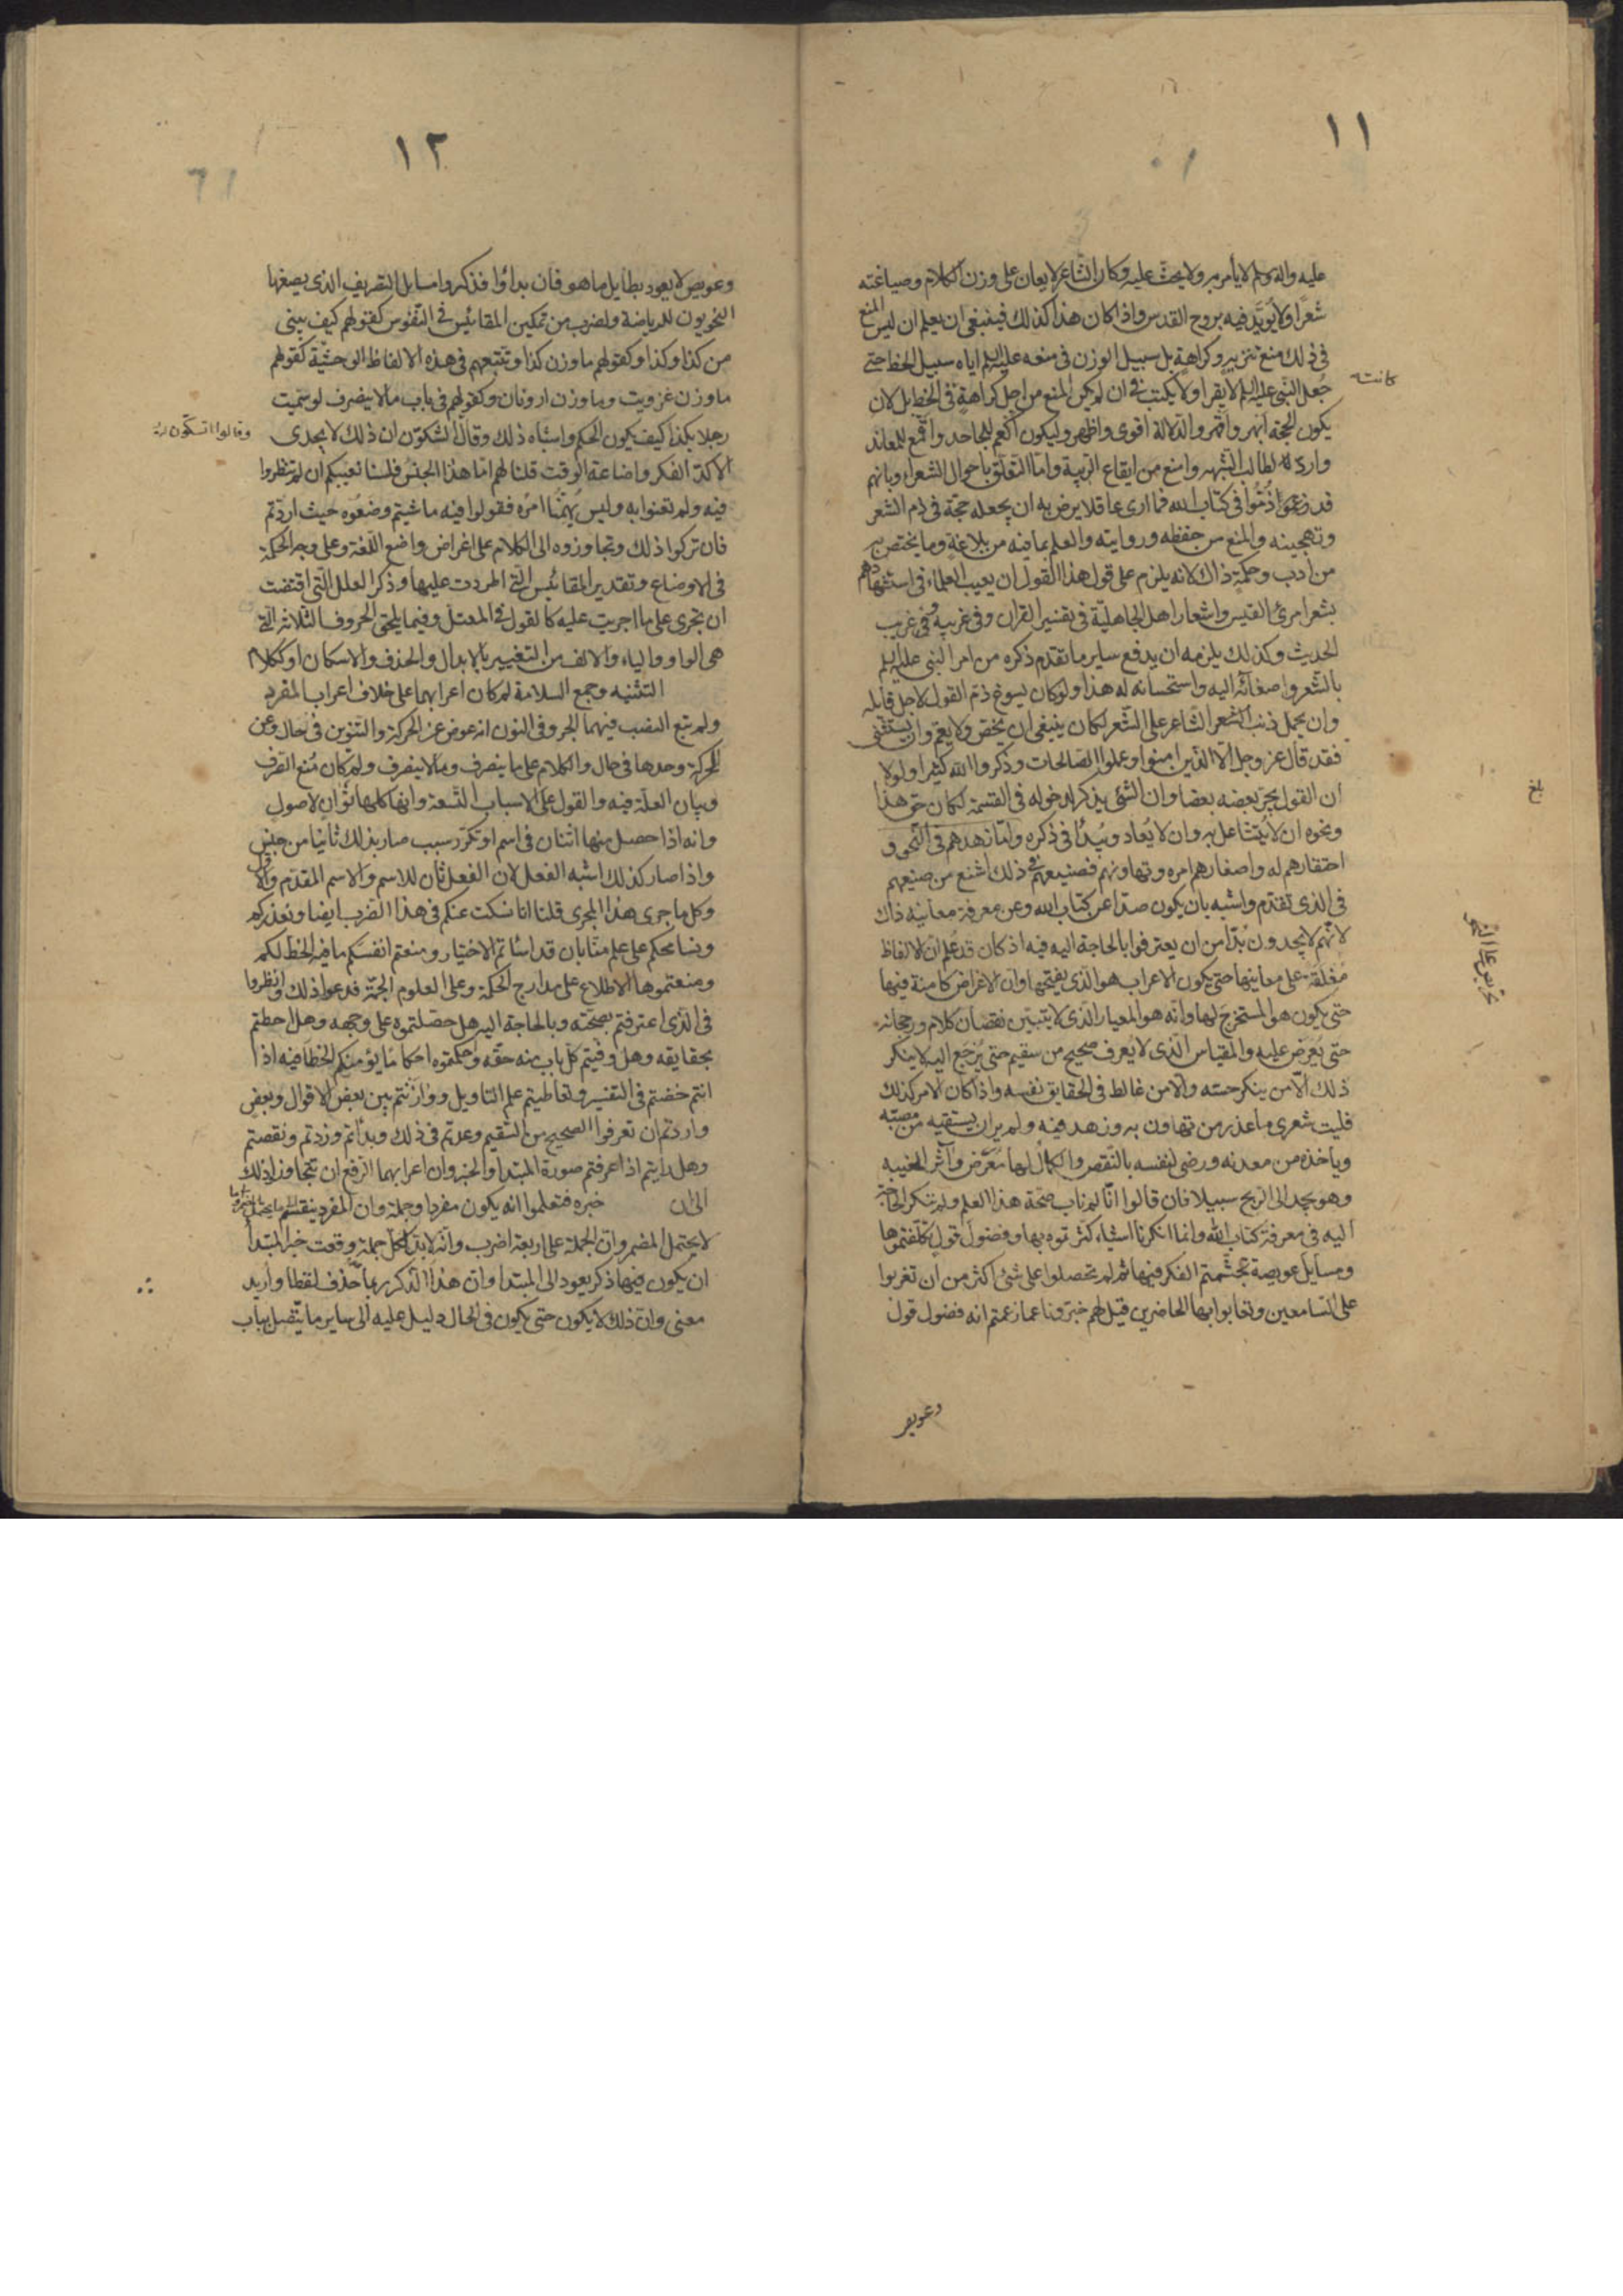 ١١
عليه وآله وسلم لا يأمر به ولا يحث عليه وكان الشاعر لا يعان على وزن الكلام وصياغته
شعرا ولا يؤيد فيه بروح القدس واذا كان هذا كذلك فينبغى ان يعلم ان ليس المنع
فى ذلك منع تنزيه وكراهة بل سبيل الوزن فى منعه عليه السلم اياه سبيل الخط حتى
جعل النبى عليه السلم لا يقرا ولا يكتب فى ان لم يكن المنع من اجل كراهة فى الخط بل لان
كانت
يكون الحجة ابهر واقهر والدلالة اقوى واظهر وليكون اكعم للجاحد واقمع للمعاند
وارد لطالب الشبهه وامنع من ايقاع الريبة واما التعلق باحوال الشعراء وبانهم
قد ذموا فى كتاب الله فما ارى عاقلا يرضى به ان يجعله حجة فى ذم الشعر
وتهجينه والمنع من حفظه وروايته والعلم بما فيه من بلاغة وما يختص به
من ادب وحكمة ذاك لانه يلزم على قول هذا القول ان يعيب العلماء فى استشهادهم
بشعر امرئ القيس واشعار اهل الجاهلية فى تفسير القرآن وفى غريبه وفى غريب
الحديث وكذلك يلزمه ان يدفع ساير ما تقدم ذكره من امر النبى عليه السلم
بالشعر واصغائه اليه واستحسانه له هذا ولو كان يسوغ ذم القول لاجل قايله
وان يحمل ذنب الشاعر على الشعر لكان ينبغى ان يخص ولا يعم وان يستثنى
فقد قال عز وجل الا الذين امنوا وعملوا الصالحات وذكروا الله كثيرا ولولا
ان القول يجر بعضه بعضا وان الشئ يذكر لدخوله فى القسمة لكان حق هذا
بلغ
ونحوه ان لا يتشاغل به وان لا يعاد ويبدأ فى ذكره واما زهدهم فى النحو و
احتقارهم له واصغارهم امره وتهاونهم فصنيعهم فى ذلك اشنع من صنيعهم
فى الذى تقدم واشبه بان يكون صدا عن كتاب الله وعن معرفة معانيه ذاك
لانهم لا يجدون بدا من ان يعترفوا بالحاجة اليه فيه اذ كان قد علم ان الالفاظ
مغلقة على معانيها حتى يكون الاعراب هو الذى يفتحها وان الاغراض كامنة فيها
حتى يكون هو المستخرج لها وانه هو المعيار الذى لا يتبين نقصان كلام ورجحانه
حتى يعرض عليه والمقياس الذى لا يعرف صحيح من سقيم حتى يرجع اليه لا ينكر
ذلك الا من ينكر حسه والا من غالط فى الحقايق نفسه واذا كان الامر كذلك
فليت شعرى ما عذر من تهاون به وزهد فيه ولم ير ان يستقيه من مصبه
وياخذه من معدنه ورضى لنفسه بالنقص والكمال لها معرض وآثر الغبينه
وهو يجد الى الربح سبيلا فان قالوا انا لم ناب صحة هذا العلم ولم ننكر الحاجة
اليه فى معرفة كتاب الله وانما انكرنا اشياء كثرتموه بها وفضول قول تكلفتموها
ومسايل عويصة تجشمتم الفكر فيها ثم لم تحصلوا على شئ اكثر من ان تغربوا
على السامعين وتعايوا بها الحاضرين قيل لهم خبرونا عما زعمتم انه فضول قول
وعويص
١٢
وعويص لا يعود بطايل ما هو فان بدأوا فذكروا مسايل التصريف الذى يضعها
النحويون للرياضة ولضرب من تمكين المقائيس فى النفوس كقولهم كيف يبنى
من كذا وكذا وكقولهم ما وزن كذا وتتبعهم فى هذه الالفاظ الوحشية كقولهم
ما وزن عزويت وما وزن ارونان وكقولهم فى باب ما لا ينصرف لو سميت
رجلا بكذا كيف يكون الحكم واشباه ذلك وقالوا اتشكون ان ذلك لا يجدى
وقالوا اتشكون
الا كد الفكر واضاعة الوقت قلنا لهم اما هذا الجنس فلسنا نعيبكم ان لم تنظروا
فيه ولم تعنوا به وليس يهمنا امره فقولوا فيه ما شيتم وضعوه حيث اردتم
فان تركوا ذلك وتجاوزوه الى الكلام على اغراض واضع اللغة وعلى وجه الحكمة
فى الاوضاع وتقدير المقائيس التى اطردت عليها وذكر العلل التى اقتضت
ان تجرى على ما اجريت عليه كالقول فى المعتل وفيما يلحق الحروف الثلاثة التى
هى الواو والياء والالف من التغيير بالابدال والحذف والاسكان او ككلام
التثنيه وجمع السلامة لم كان اعرابهما على خلاف اعراب المفرد
ولم تبع النصب فيهما الجر وفى النون انه عوض عن الحركة والتنوين فى حال وعن
الحركة وحدها فى حال والكلام على ما ينصرف وما لا ينصرف ولم كان منع الصرف
وبيان العلة فيه والقول على الاسباب التسعة وانها كلها ثوان لاصول
وانه اذا حصل منها اثنان فى اسم او تكرر سبب صار بذلك ثانيا من جهتين
واذا صار كذلك اشبه الفعل لان الفعل ثان للاسم والاسم المقدم والاول
وكل ما جرى هذا المجرى قلنا انا نسكت عنكم فى هذا الضرب ايضا ونعذركم
ونسامحكم على علم منا بان قد اسأتم الاختيار ومنعتم انفسكم ما فيه الحظ لكم
ومنعتموها الاطلاع على مدارج الحكمة وعلى العلوم الجمة فدعوا ذلك وانظروا
فى الذى اعترفتم بصحته وبالحاجة اليه هل حصلتموه على وجهه وهل احطتم
بحقايقه وهل وفيتم كل باب منه حقه واحكمتموه احكاما يؤمنكم الخطأ فيه اذا
انتم خضتم فى التفسير وتعاطيتم علم التاويل ووازنتم بين بعض الاقوال وبعض
واردتم ان تعرفوا الصحيح من السقيم وعدتم فى ذلك وبدأتم وزدتم ونقصتم
وهل رايتم اذا عرفتم صورة المبتدا والخبر وان اعرابهما الرفع ان تتجاوزوا ذلك
الى ان خبره فتعلموا انه يكون مفردا وجملة وان المفرد ينقسم الى ما يحتمل
لا يحتمل المضمر وان الجملة على اربعة اضرب وانه لا بد لكل جملة وقعت خبر المبتدا
ان يكون فيها ذكر يعود الى المبتدا وان هذا الذكر ربما حذف لفظا واريد
معنى وان ذلك لا يكون حتى يكون فى الحال دليل عليه الى ساير ما يتصل بباب